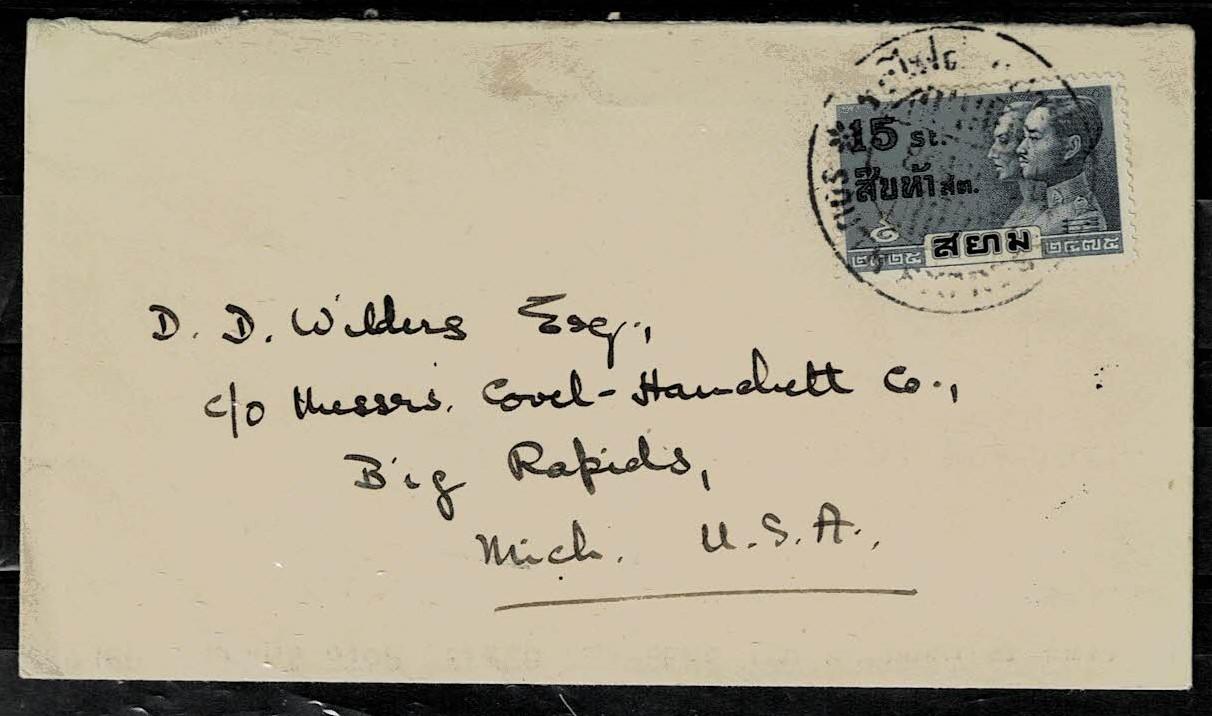 15 st.
สิบห้า สต.
๒๓๒๕ สยาม ๒๔๗๕
D. D. Wilders Esq.,
c/o Messrs. Covel-Hanchett Co.,
Big Rapids,
Mich. U.S.A.,